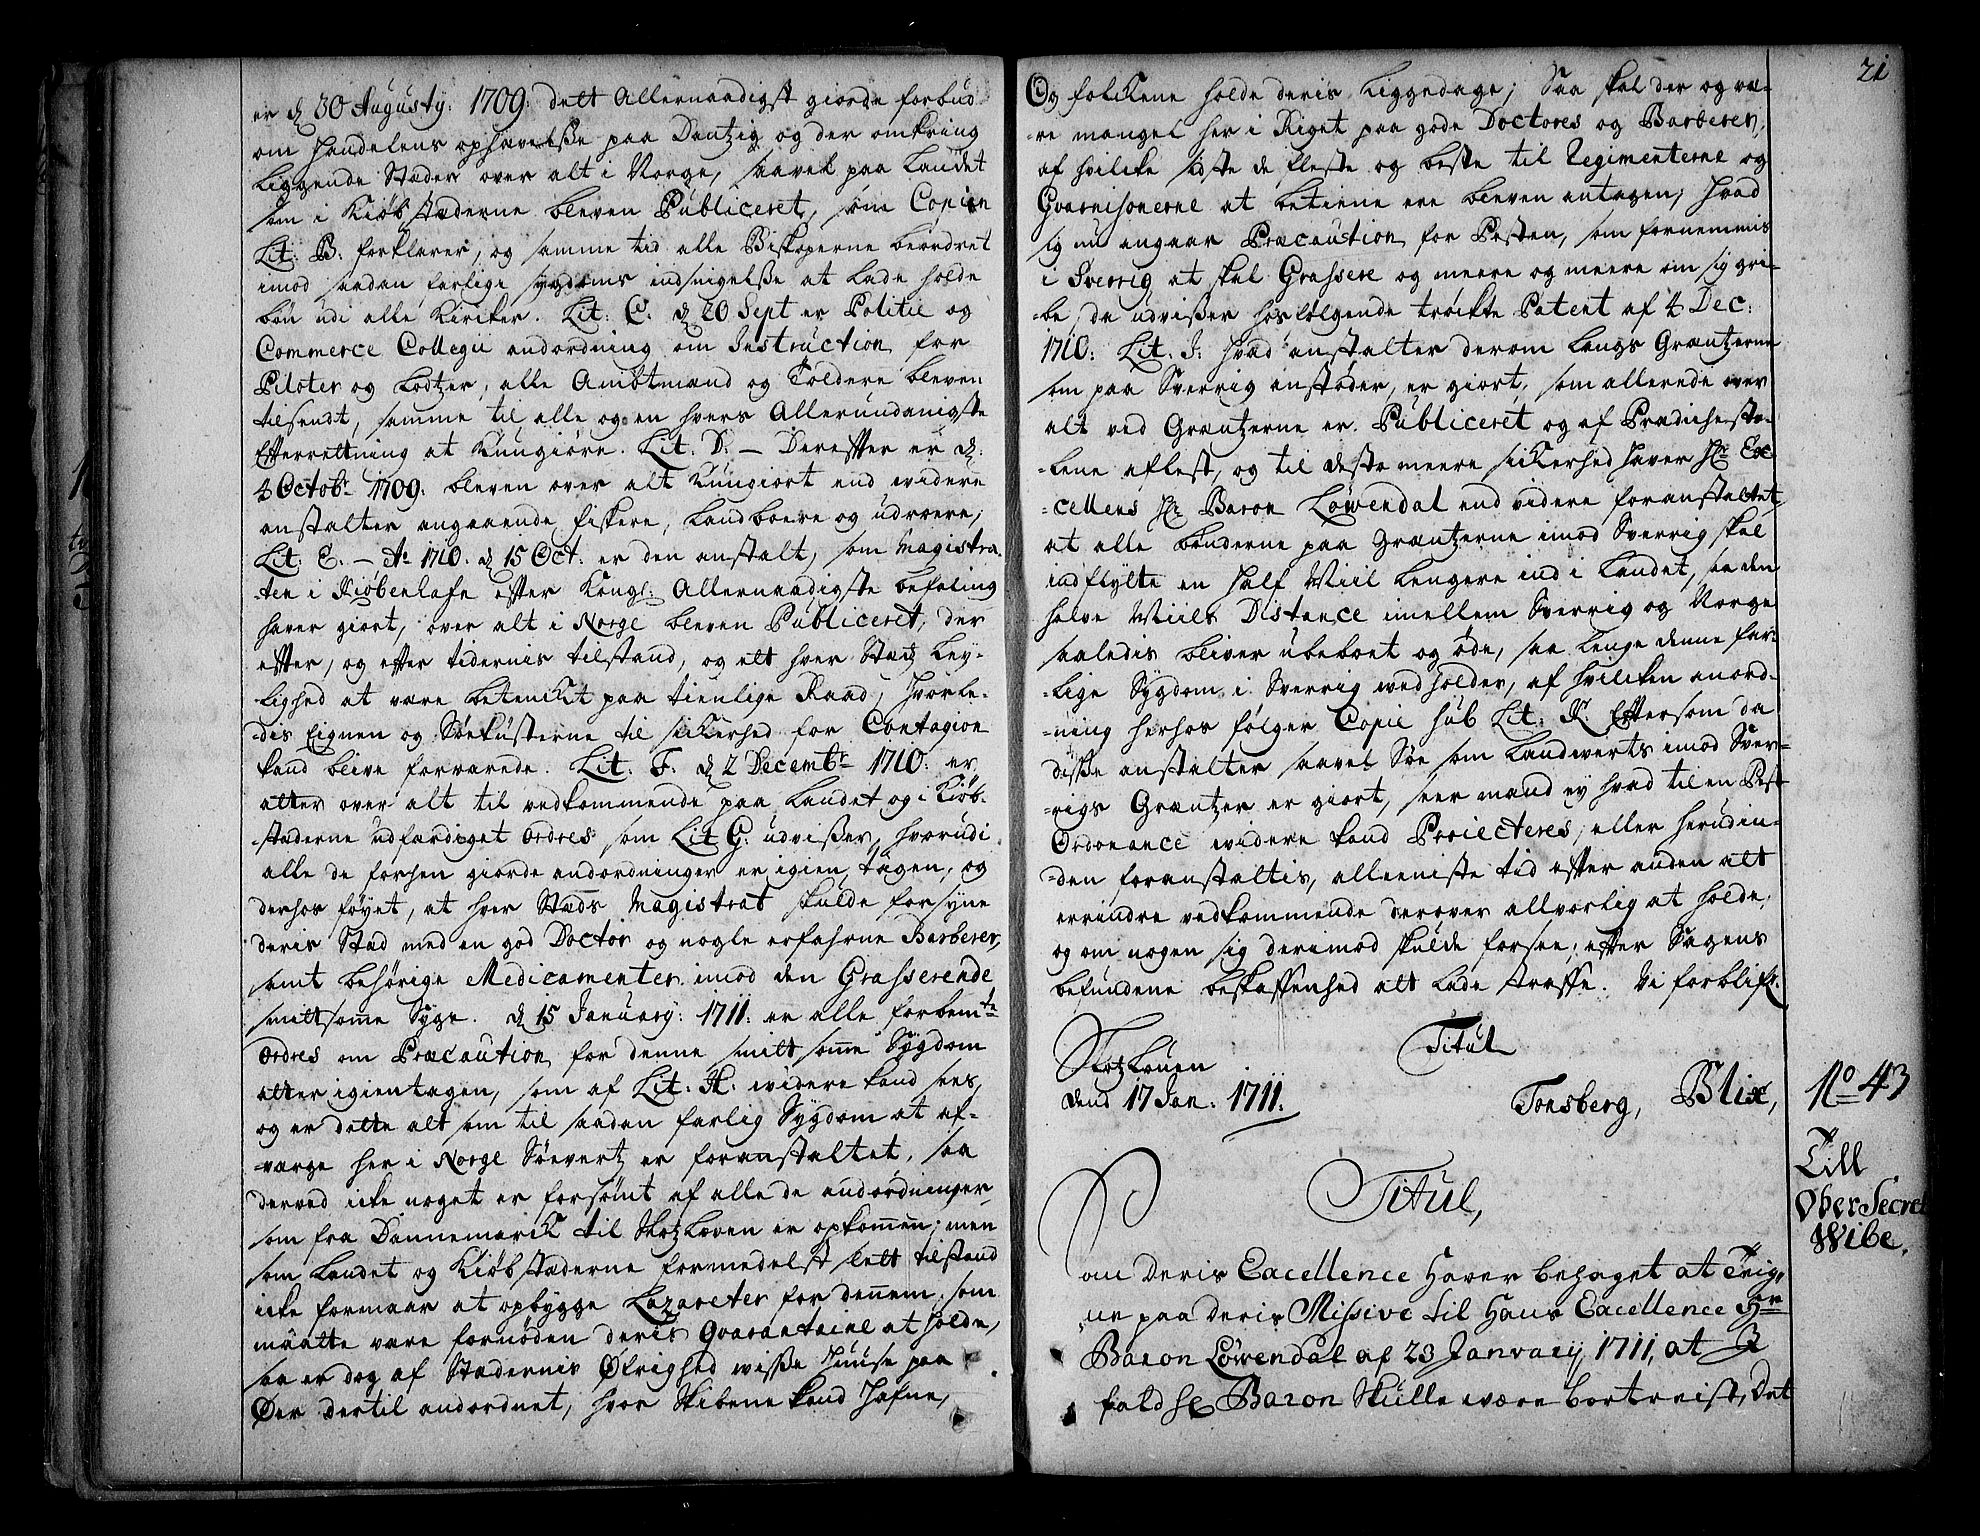 er d 30 Augusty: 1709: dett Allernaadigst giorde forbud
om handelens ophævelsse paa Dantzig og der omkring
liggende Stæder over alt i Norge, saavel paa Landet
som i Kiøbstæderne bleven Publiceret, som Copien
Lit: B. forklarer, og samme tid alle Biskoperne beordret
imod saadan farlige sygdoms indsnigelsse at lade holde
bøn udi alle Kirker. Lit: C. d 20 Sept er Politie og
Commerce Collegii andordning om Instruction for
Piloter og Lodtzer, alle Ambtmænd og Toldere bleven
tilsendt, samme til alle og en hvers Allerundanigste
Efterrettning at kungiøre. Lit: D. – Derefter er d:
4 Octobr 1709: bleven over alt kungiort end widere
anstalter angaaende fiskere, Landboere og udroere;
Lit: E. – Ao 1710. d 15 Oct: er den anstalt, som Magistra-
-ten i Kiøbenhafn efter Kongl: Allernaadigste befaling
haver giort, over alt i Norge bleven Publiceret, der
efter, og efter tidernis tilstand, og ett hver Stædz Ley-
-lighed at være betenckt paa tienlige Raad, hvorle-
-dis Eignen og Søekusterne til sickerhed for Contagion
kand blive forvarede. Lit: F. d 2 Decembr 1710: er
atter over alt til vedkommende paa Landet og i Kiøb-
-stæderne udfærdiget ordres som Lit G. udvisser, hvorudi
alle de forhen giorde andordninger er igien tagen, og
derhos føyet, at hver Stæds Magistrat skulde forsyne
deris Stad med en god Doctor og nogle erfahrne Barberer,
samt behørige Medicamenter imod den Grasserende
smittsomme Syge. d 15 January: 1711: er alle forbemte
ordres om Præcaution for denne smittsomme Sygdom
atter igientagen, som af Lit: H: widere kand sees,
og er dette alt som til saadan farlig Sygdom at af-
-værge her i Norge Søevertz er foranstaltet, saa
derved icke noget er forsømt af alle de andordninger
som fra Dannemarck til Slotzloven er opkommen; men
som Landet og Kiøbstæderne formedelst slett tilstand
icke formaar at opbygge Lazareter for dennem, som
maatte være fornøden deris Qvarantaine at holde,
saa er dog af Stædernis Øfrighed wisse Huuse paa
Øer dertil andordnet, hvor Skibene kand Hafne,
21
Og folckene holde deris Liggedage; Saa skal der og væ-
-re mangel her i Riget paa gode Doctores og Barberer,
af hvilcke sidste de fleste og beste til Regimenterne og
Gvarnisonerne at betiene ere bleven antagen; Hvad
sig nu angaar Præcaustion for Pesten, som fornemmis
i Sverrig at skal Grassere og meere og meere om sig gri-
-be, da udvisser hosfølgende trøckte Patent af 4 Dec:
1710: Lit. I: hvad anstalter derom langs Grændtzerne
som paa Sverrig anstøder, er giort, som allerede over
alt ved Grændtzerne er Publiceret og af Prædichestø-
-lene aflest, og til desto meere sickerhed haver Hr Ex-
-cellens Hr Baron Løwendal end videre foranstaltet
at alle bønderne paa Grændtzerne imod Sverrig skal
indflytte en half Miil lengere ind i Landet, saa den
halve Miils Distance imellem Sverrig og Norge
saaledis bliver ubeboet og øde, saa lenge denne far-
-lige Sygdom i Sverrig wedholder, af hvilcken anord-
-ning herhos følger Copie sub Lit: K. Eftersom da
disse anstalter saavel Søe som Landwerts imod Sver-
-rigs Græntzer er giort, seer mand ey hvad til en Pest
Ordonance widere kand Proiecteres, eller herudin-
-den foranstaltis, alleeniste tid efter anden alt
erindre vedkommende derover alvorlig at holde,
og om nogen sig derimod skulde forsee, efter Sagens
befundene beskaffenhed alt lade straffe. Vi forblifr.
Titul
Slotzlouen
dend 17 Jan: 1711.
Tonsberg, Blix,
No 43
Till
Ober Secret
Wibe.
Titul,
om Deris Excellence Haver behaget at Teig-
ne paa Deris Missive til Hans Excellence Hr
Baron Löwendal af 23 January 1711, at J
fald Hr Baron Skulle være bortreist, Det